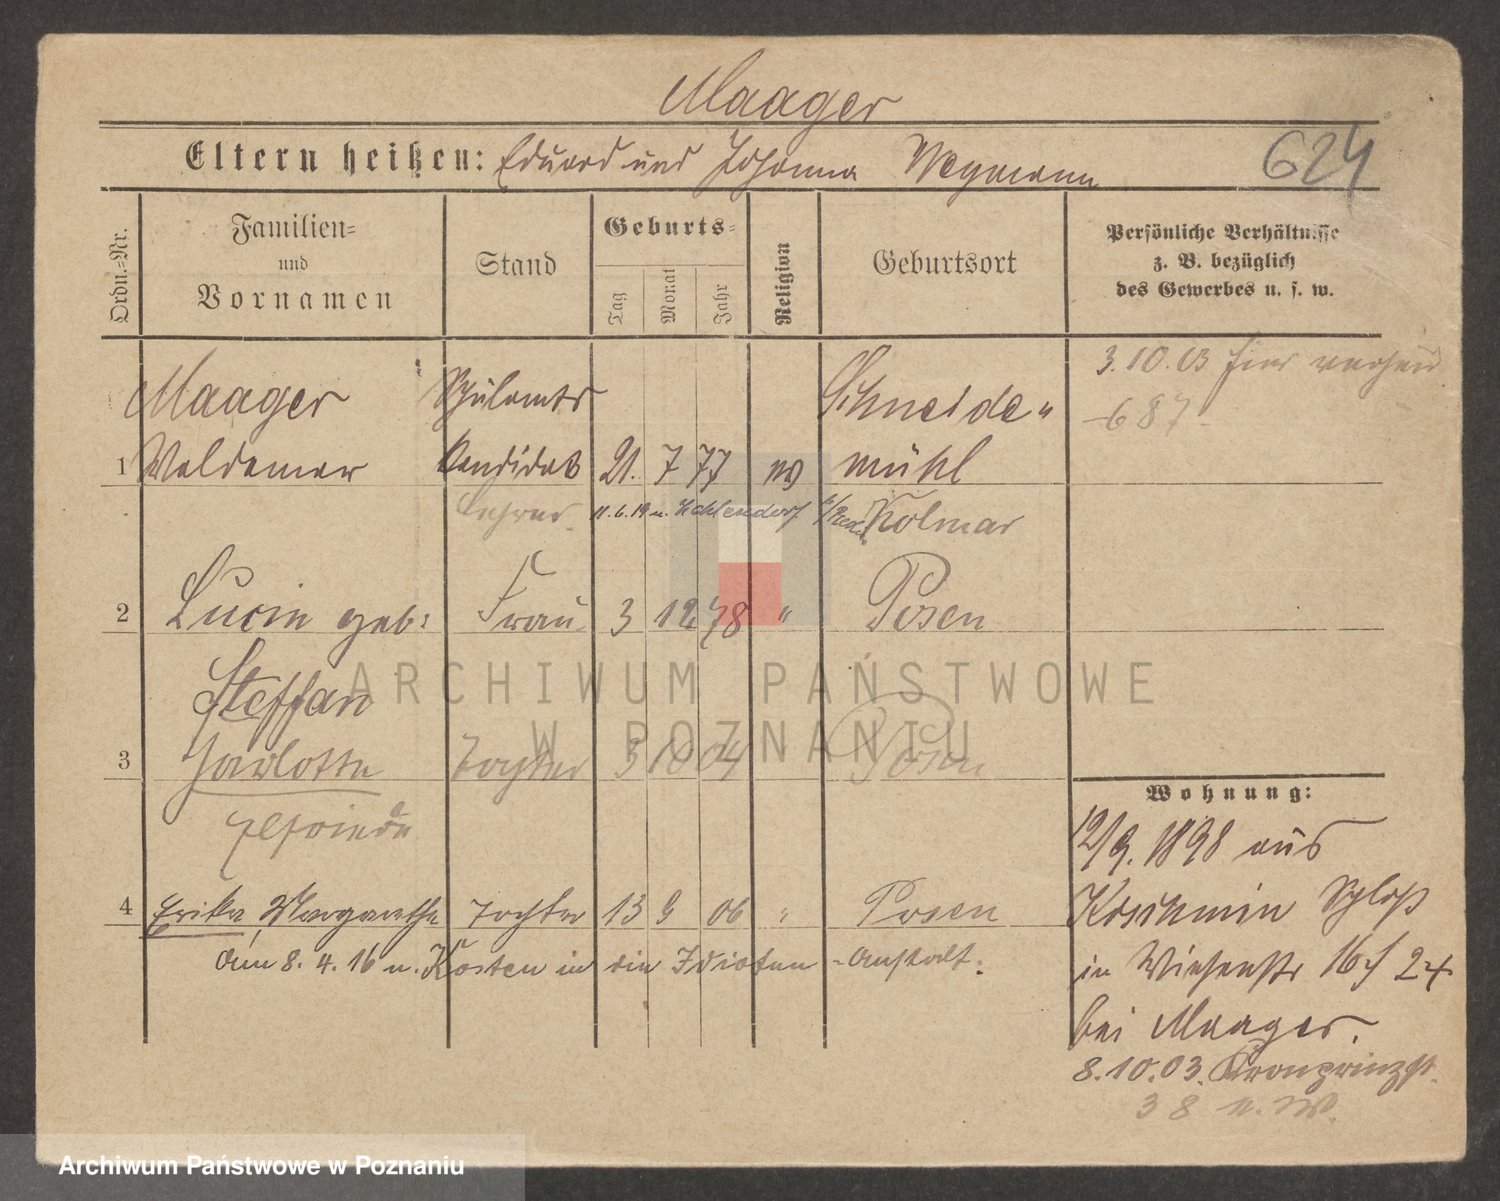 Maager
Eltern heißen: Eduard und Johanna Wegmann
624
Ordn.-Nr.
Familien-
und
Vornamen
Stand
Geburts-
Tag
Monat
Jahr
Religion
Geburtsort
Persönliche Verhältnisse
z. B. bezüglich
des Gewerbes u. s. w.
Maager Schulamts Schneide"
1 Waldemar Kandidat 21. 7 77 mühl
Lehrer 11.6.19 n. Zehlendorf Kolmar
3.10.03 hier
687
2 Lucie geb: Frau 3 12 78 " Posen
Steffan
3 Tochter 3 10 04 Posen
Elfriede
4 Erika, Margarethe Tochter 13 9 06 " Posen
den 8. 4. 16 n. Kosten in die Idioten-Anstalt.
Wohnung:
12/9. 1898 aus
Koschmin Schloß
in Wiesenstr 16
bei Maager.
8.10.03. Kronprinzst.
38
ARCHIWUM PAŃSTWOWE
W POZNANIU
Archiwum Państwowe w Poznaniu